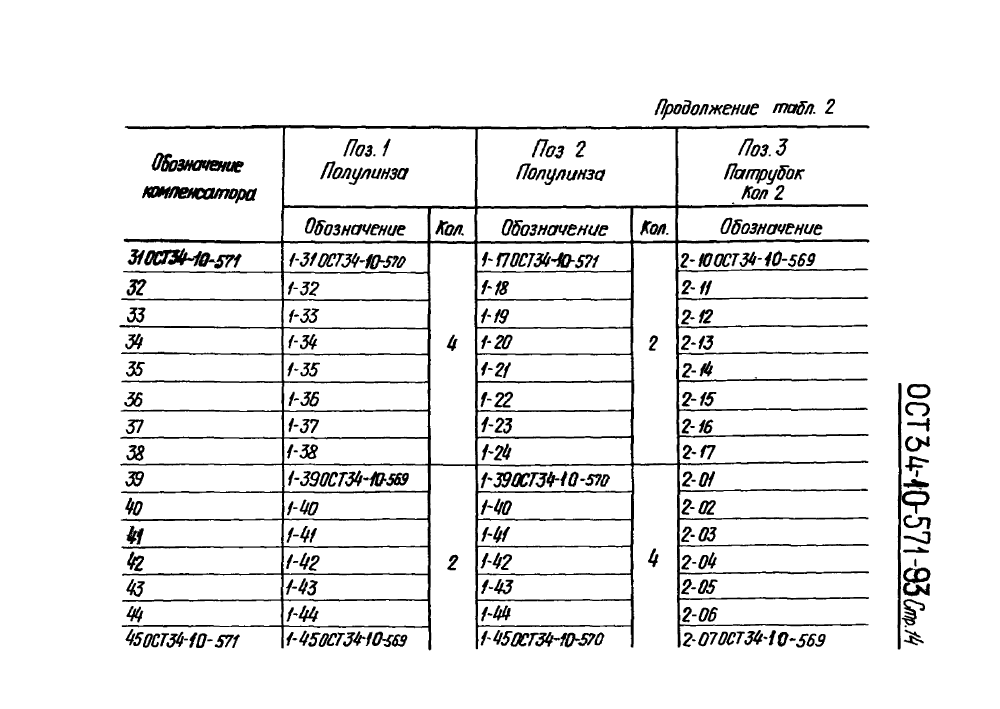 Продолжение табл. 2
Обозначение компенсатора | Поз. 1 Полулинза | Поз 2 Полулинза | Поз. 3 Патрубок Кол 2
Обозначение | Кол. | Обозначение | Кол. | Обозначение
31 ОСТ34-10-571 | 1-31 ОСТ34-10-570 | 1-17 ОСТ34-10-571 | 2-10 ОСТ34-10-569
32 | 1-32 | 1-18 | 2-11
33 | 1-33 | 1-19 | 2-12
34 | 1-34 | 4 | 1-20 | 2 | 2-13
35 | 1-35 | 1-21 | 2-14
36 | 1-36 | 1-22 | 2-15
37 | 1-37 | 1-23 | 2-16
38 | 1-38 | 1-24 | 2-17
39 | 1-39 ОСТ34-10-569 | 1-39 ОСТ34-10-570 | 2-01
40 | 1-40 | 1-40 | 2-02
41 | 1-41 | 1-41 | 2-03
42 | 1-42 | 2 | 1-42 | 4 | 2-04
43 | 1-43 | 1-43 | 2-05
44 | 1-44 | 1-44 | 2-06
45 ОСТ34-10-571 | 1-45 ОСТ34-10-569 | 1-45 ОСТ34-10-570 | 2-07 ОСТ34-10-569
ОСТ34-10-571-93 Стр. 14